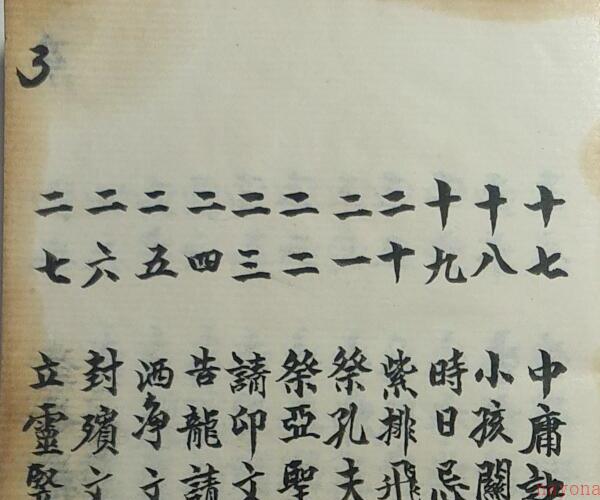 3
十七 中庸
十八 小孩關
十九 時日忌
二十 紫排飛
二一 祭孔夫
二二 祭亞聖
二三 請印文
二四 告龍請
二五 洒净文
二六 封殯文
二七 立靈竪